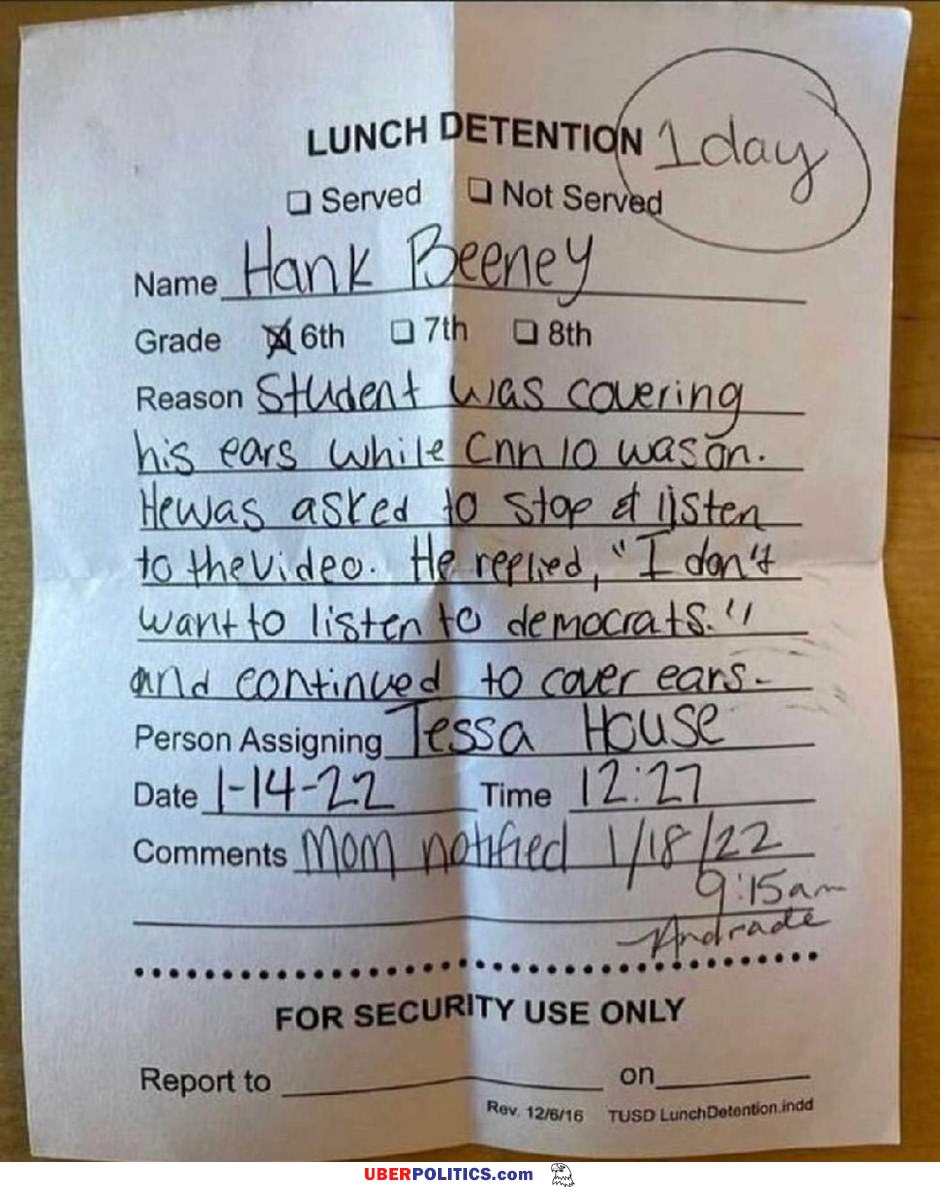 LUNCH DETENTION 1 day
☐ Served ☐ Not Served
Name Hank Beeney
Grade ☒ 6th ☐ 7th ☐ 8th
Reason Student was covering
his ears while Cnn 10 was on.
He was asked to stop & listen
to the video. He replied, "I don't
want to listen to democrats."
and continued to cover ears.
Person Assigning Tessa House
Date 1-14-22 Time 12:27
Comments Mom notified 1/18/22
9:15am
Andrade
FOR SECURITY USE ONLY
Report to on
Rev. 12/6/16 TUSD LunchDetention.indd
UBERPOLITICS.com